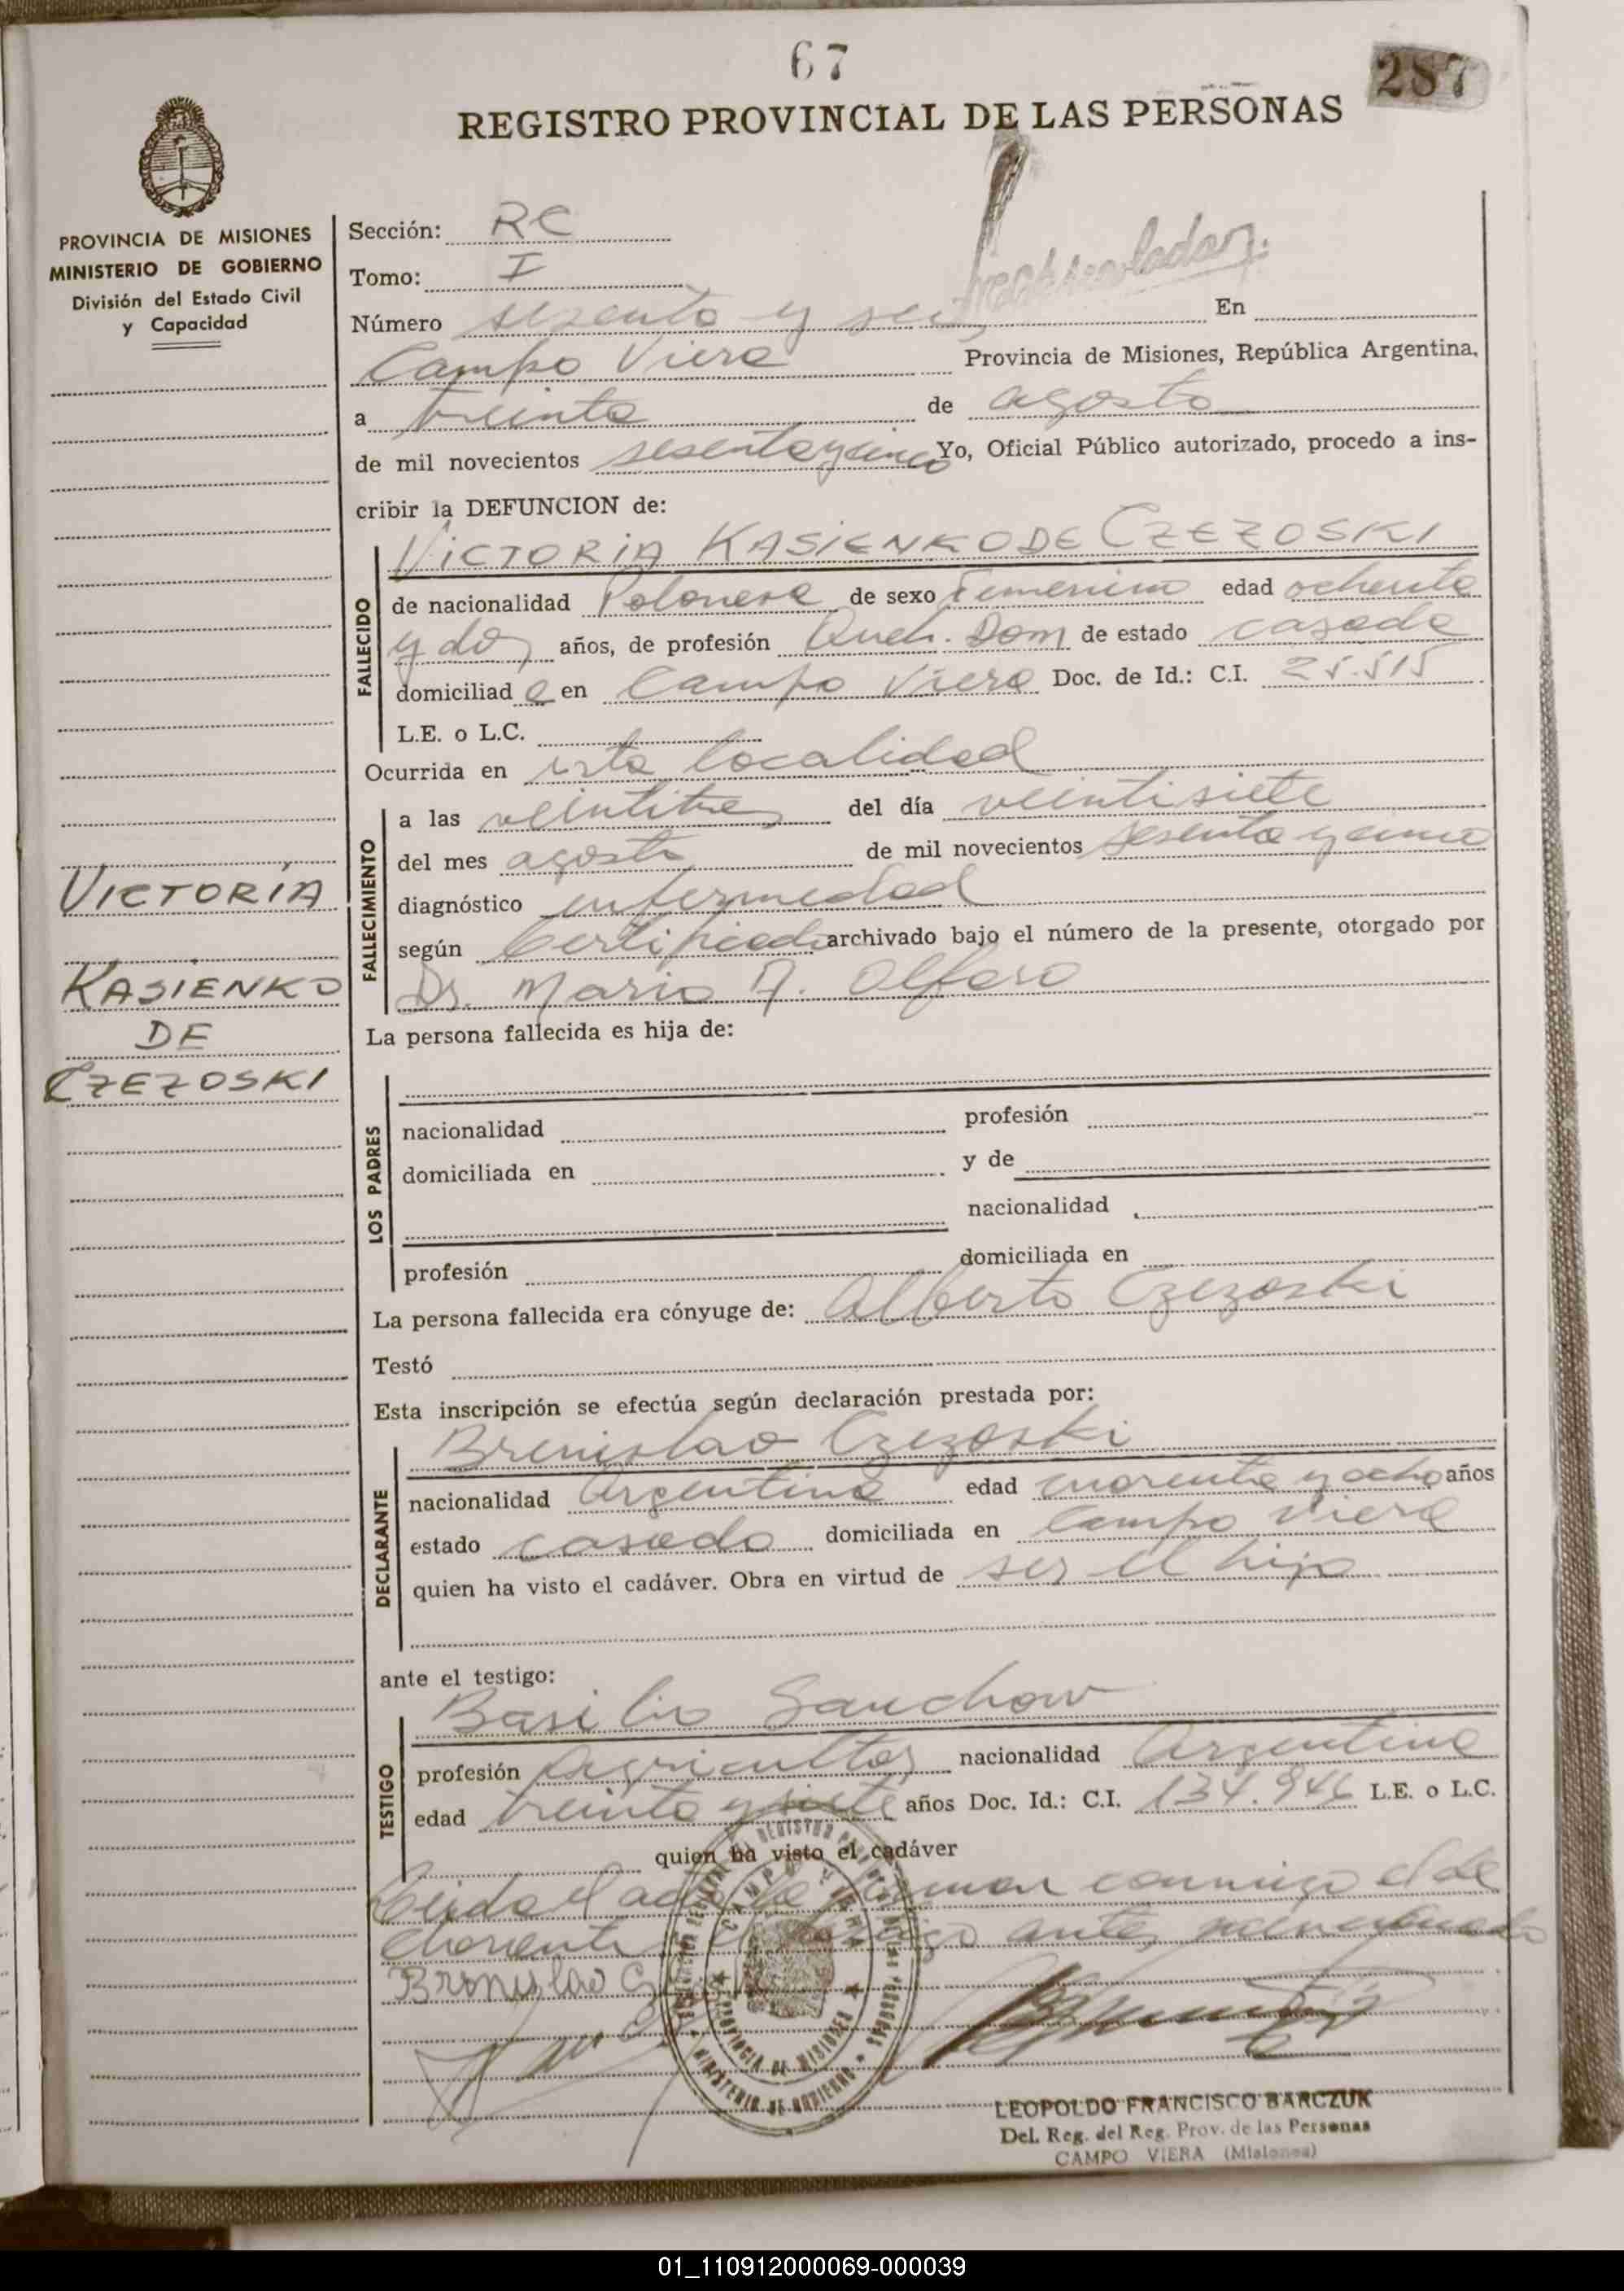 67
287
REGISTRO PROVINCIAL DE LAS PERSONAS
PROVINCIA DE MISIONES
MINISTERIO DE GOBIERNO
División del Estado Civil
y Capacidad
Sección: RC
Tomo: I
Número sesenta y seis En
Campo Viera Provincia de Misiones, República Argentina,
a treinta de agosto
de mil novecientos sesenta y cinco Yo, Oficial Público autorizado, procedo a ins-
cribir la DEFUNCION de:
VICTORIA KASIENKO DE CZEZOSKI
FALLECIDO
de nacionalidad Polonesa de sexo Femenino edad ochenta
y dos años, de profesión Queh. Dom de estado casada
domiciliad a en Campo Viera Doc. de Id.: C.I. 25.515
L.E. o L.C.
Ocurrida en esta localidad
FALLECIMIENTO
a las veintitres del día veintisiete
del mes agosto de mil novecientos sesenta y cinco
diagnóstico enfermedad
según Certificado archivado bajo el número de la presente, otorgado por
Dr. Mario A. Alfaro
VICTORIA
KASIENKO
DE
CZEZOSKI
La persona fallecida es hija de:
LOS PADRES
nacionalidad profesión
domiciliada en y de
nacionalidad
profesión domiciliada en
La persona fallecida era cónyuge de: Alberto Czezoski
Testó
Esta inscripción se efectúa según declaración prestada por:
Brenislao Czezoski
DECLARANTE
nacionalidad Argentina edad cuarenta y ocho años
estado casado domiciliada en Campo Viera
quien ha visto el cadáver. Obra en virtud de ser el hijo
ante el testigo:
Basilio Sauchow
TESTIGO
profesión Agricultor nacionalidad Argentina
edad treinta y siete años Doc. Id.: C.I. 134.946 L.E. o L.C.
quien ha visto el cadáver
Leida el acta la firman conmigo el de
clarante el testigo antes mencionado
Bronislao
PROVINCIA DE MISIONES
MINISTERIO DE GOBIERNO
LEOPOLDO FRANCISCO BARCZUK
Del. Reg. del Reg. Prov. de las Personas
CAMPO VIERA (Misiones)
01_110912000069-000039